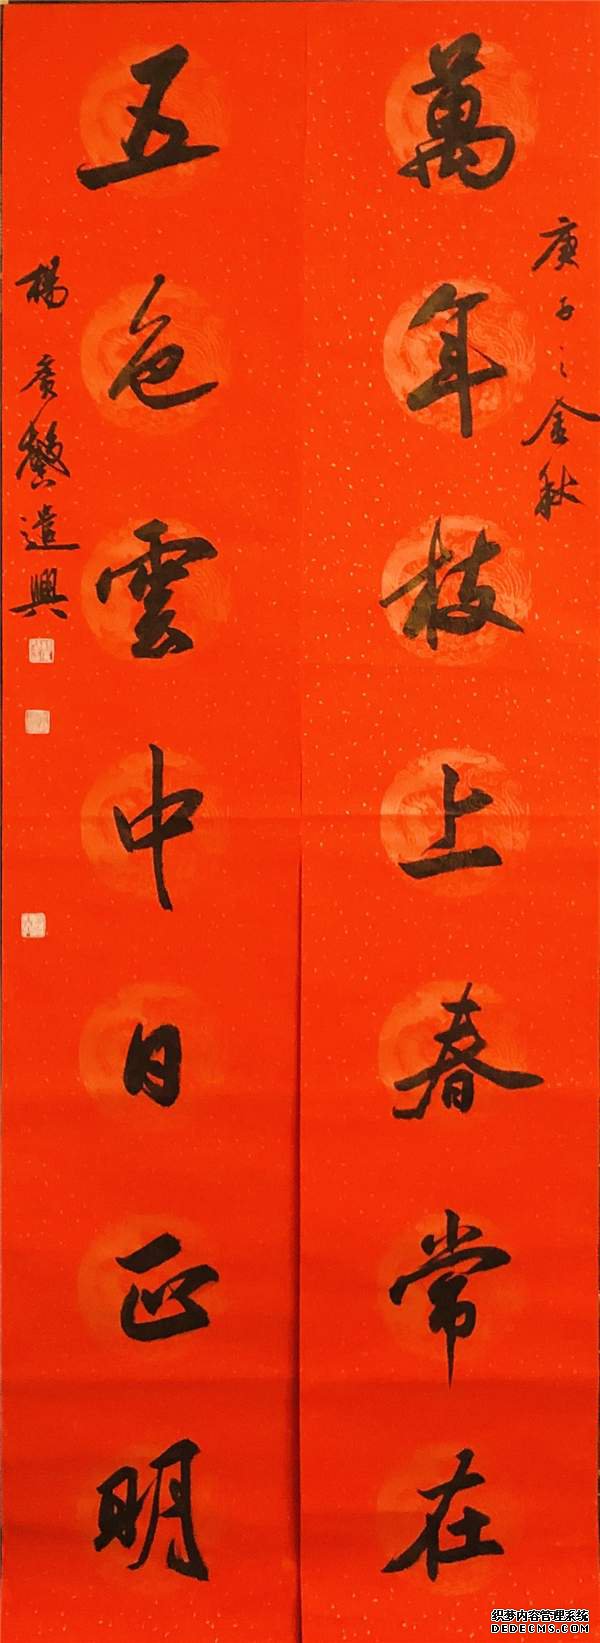 庚子之金秋
萬年枝上春常在
五色雲中日正明
楊 遣興
织梦内容管理系统
DEDECMS.COM